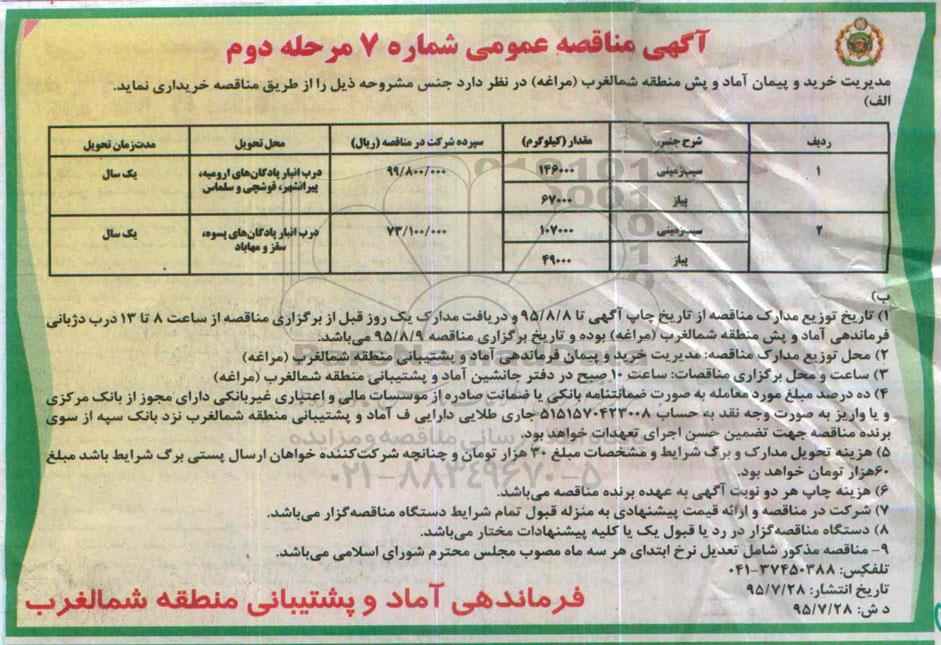 آگهی مناقصه عمومی شماره ۷ مرحله دوم
مدیریت خرید و پیمان آماد و پش منطقه شمالغرب (مراغه) در نظر دارد جنس مشروحه ذیل را از طریق مناقصه خریداری نماید.
الف)
ردیف شرح جنس مقدار (کیلوگرم) سپرده شرکت در مناقصه (ریال) محل تحویل مدت‌زمان تحویل
۱ سیب‌زمینی ۱۴۶۰۰۰ ۹۹/۸۰۰/۰۰۰ درب انبار پادگان‌های ارومیه، یک سال
پیاز ۶۷۰۰۰ پیرانشهر، قوشچی و سلماس
۲ سیب‌زمینی ۱۰۷۰۰۰ ۷۳/۱۰۰/۰۰۰ درب انبار پادگان‌های پسوه، یک سال
پیاز ۴۹۰۰۰ سقز و مهاباد
ب)
۱) تاریخ توزیع مدارک مناقصه از تاریخ چاپ آگهی تا ۹۵/۸/۸ و دریافت مدارک یک روز قبل از برگزاری مناقصه از ساعت ۸ تا ۱۳ درب دژبانی
فرماندهی آماد و پش منطقه شمالغرب (مراغه) بوده و تاریخ برگزاری مناقصه ۹۵/۸/۹ می‌باشد.
۲) محل توزیع مدارک مناقصه: مدیریت خرید و پیمان فرماندهی آماد و پشتیبانی منطقه شمالغرب (مراغه)
۳) ساعت و محل برگزاری مناقصات: ساعت ۱۰ صبح در دفتر جانشین آماد و پشتیبانی منطقه شمالغرب (مراغه)
۴) ده درصد مبلغ مورد معامله به صورت ضمانتنامه بانکی یا ضمانت صادره از موسسات مالی و اعتباری غیربانکی دارای مجوز از بانک مرکزی
و یا واریز به صورت وجه نقد به حساب ۵۱۵۱۵۷۰۴۲۳۰۰۸ جاری طلایی دارایی ف آماد و پشتیبانی منطقه شمالغرب نزد بانک سپه از سوی
برنده مناقصه جهت تضمین حسن اجرای تعهدات خواهد بود.
۵) هزینه تحویل مدارک و برگ شرایط و مشخصات مبلغ ۳۰ هزار تومان و چنانچه شرکت‌کننده خواهان ارسال پستی برگ شرایط باشد مبلغ
۶۰هزار تومان خواهد بود.
۶) هزینه چاپ هر دو نوبت آگهی به عهده برنده مناقصه می‌باشد.
۷) شرکت در مناقصه و ارائه قیمت پیشنهادی به منزله قبول تمام شرایط دستگاه مناقصه‌گزار می‌باشد.
۸) دستگاه مناقصه‌گزار در رد یا قبول یک یا کلیه پیشنهادات مختار می‌باشد.
۹- مناقصه مذکور شامل تعدیل نرخ ابتدای هر سه ماه مصوب مجلس محترم شورای اسلامی می‌باشد.
تلفکس: ۳۷۴۵۰۳۸۸-۰۴۱
تاریخ انتشار: ۹۵/۷/۲۸
د ش: ۹۵/۷/۲۸
فرماندهی آماد و پشتیبانی منطقه شمالغرب
۰۲۱-۸۸۳۴۹۶۷۰-۵